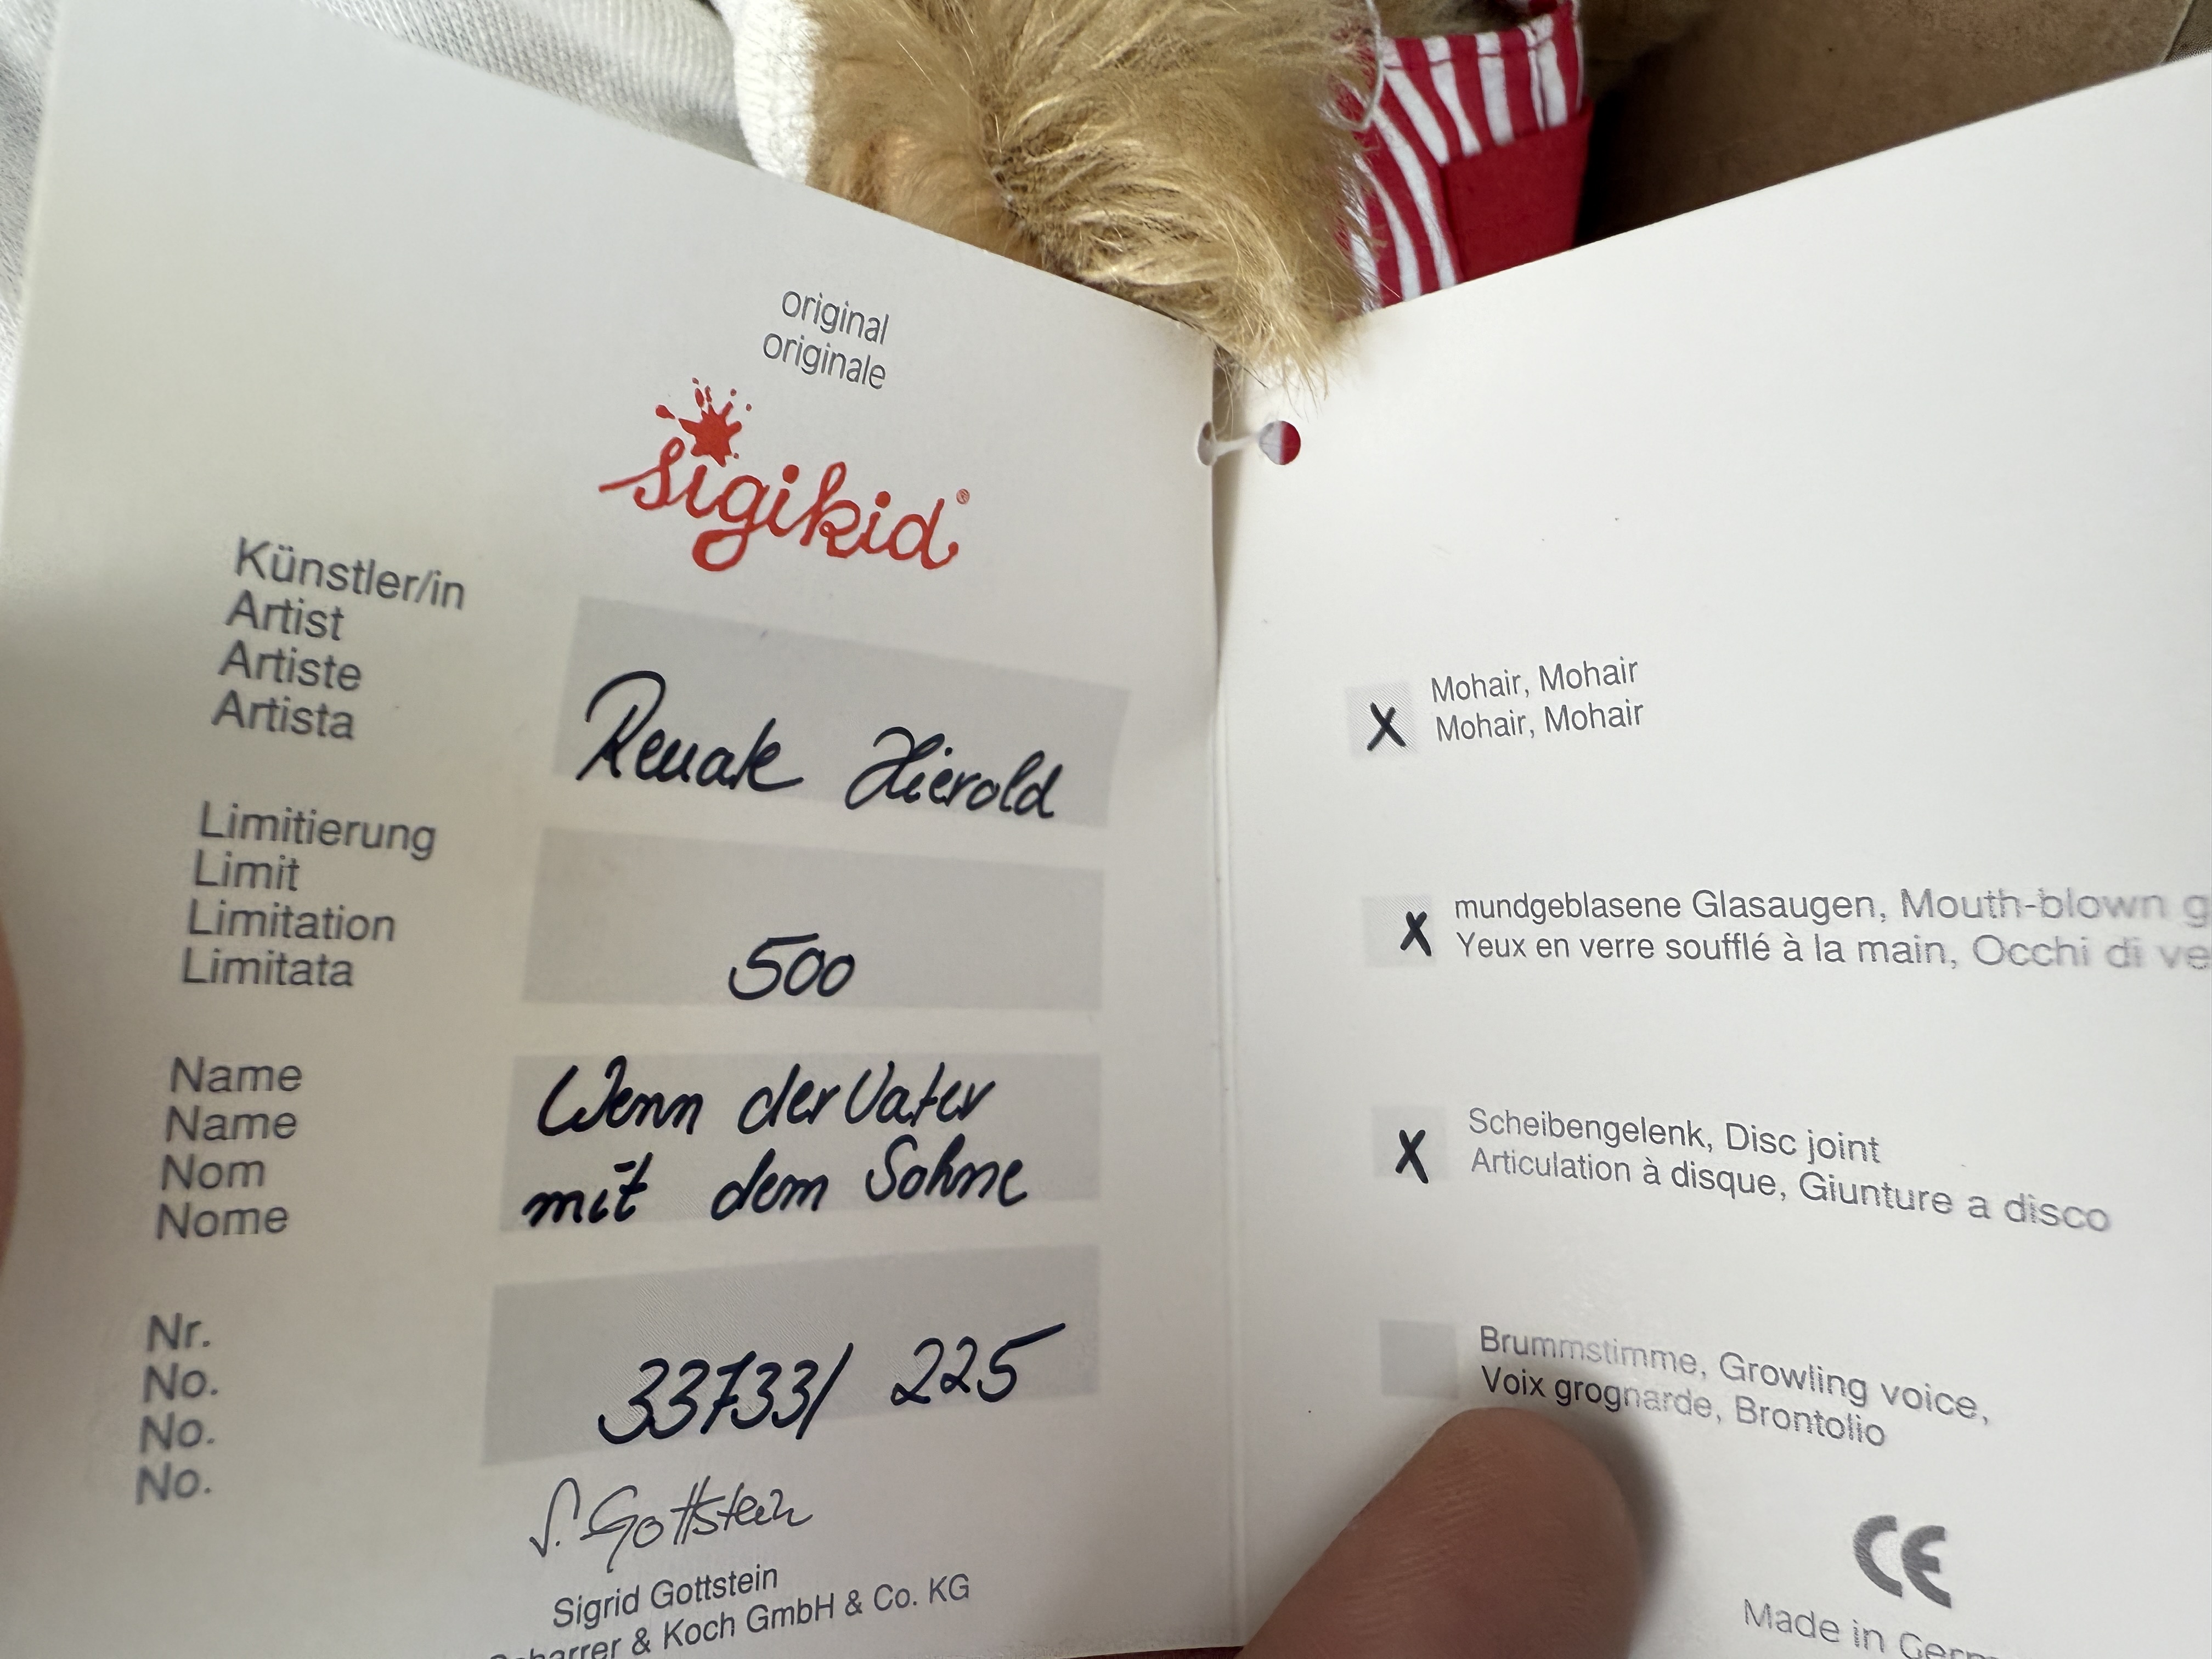 original
originale
sigikid®
Künstler/in
Artist
Artiste
Artista
Renate Hierold
Limitierung
Limit
Limitation
Limitata
500
Name
Name
Nom
Nome
Wenn der Vater
mit dem Sohne
Nr.
No.
No.
No.
33733/ 225
S. Gottstein
Sigrid Gottstein
& Koch GmbH & Co. KG
X Mohair, Mohair
Mohair, Mohair
X mundgeblasene Glasaugen, Mouth-blown
Yeux en verre soufflé à la main, Occhi di
X Scheibengelenk, Disc joint
Articulation à disque, Giunture a disco
Brummstimme, Growling voice,
Voix grognarde, Brontolio
CE
Made in